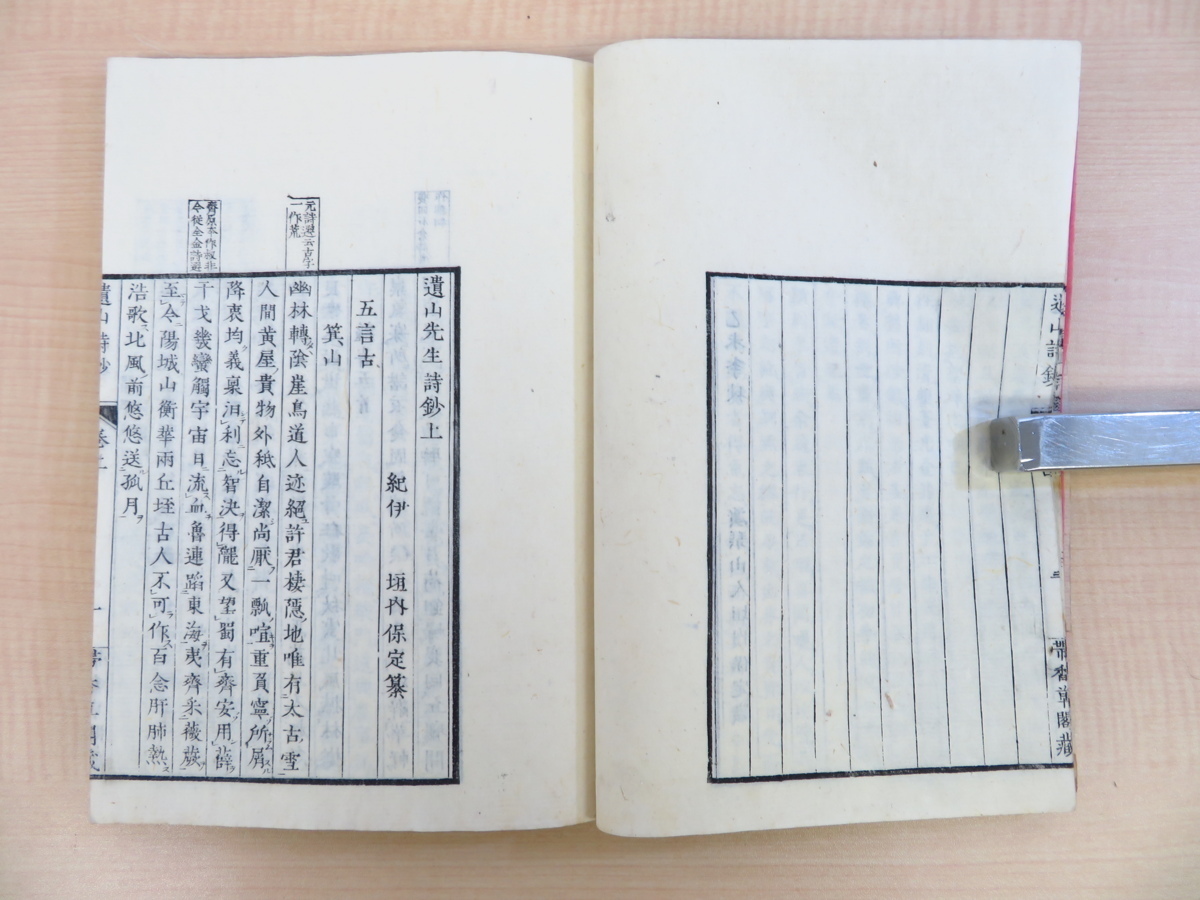 遺山詩鈔
三
帶香草閣藏
遺山先生詩鈔上
紀伊 垣内保定纂
五言古
箕山
元詩選云古字
一作荒
幽林轉陰崖鳥道人迹絕許君棲隱地唯有太古雪
人間黃屋貴物外秪自潔尚厭一瓢喧重負寧所屑
降衷均義稟汩利忘智決得隴又望蜀有齊安用薛
齊原本作叔非
今從全金詩選
干戈幾蠻觸宇宙日流血魯連蹈東海夷齊采薇蕨
至今陽城山衡華兩丘垤古人不可作百念肝肺熱
浩歌北風前悠悠送孤月
遺山詩鈔
卷上
一